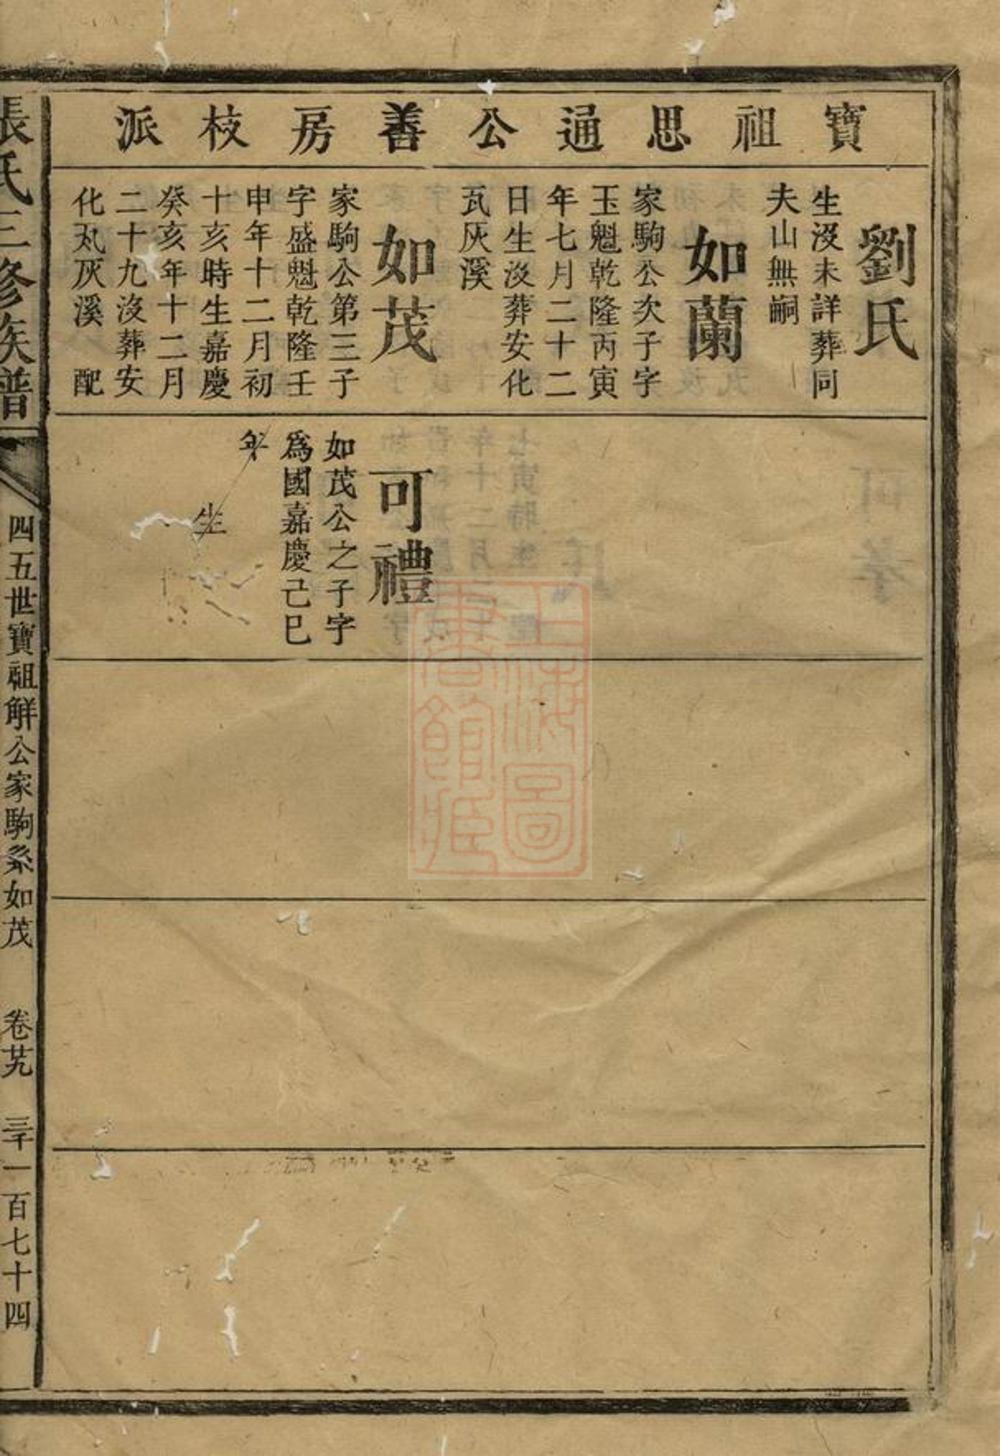 寶祖思通公善房枝派
劉氏
生沒未詳葬同
夫山無嗣
如蘭
家駒公次子字
玉魁乾隆丙寅
年七月二十二
日生沒葬安化
瓦灰溪
如茂
家駒公第三子
字盛魁乾隆壬
申年十二月初
十亥時生嘉慶
癸亥年十二月
二十九沒葬安
化瓦灰溪 配
可禮
如茂公之子字
爲國嘉慶己巳
年 生
張氏三修族譜
四五世寶祖解公家駒系如茂 卷芃 三千一百七十四
上海圖書館藏